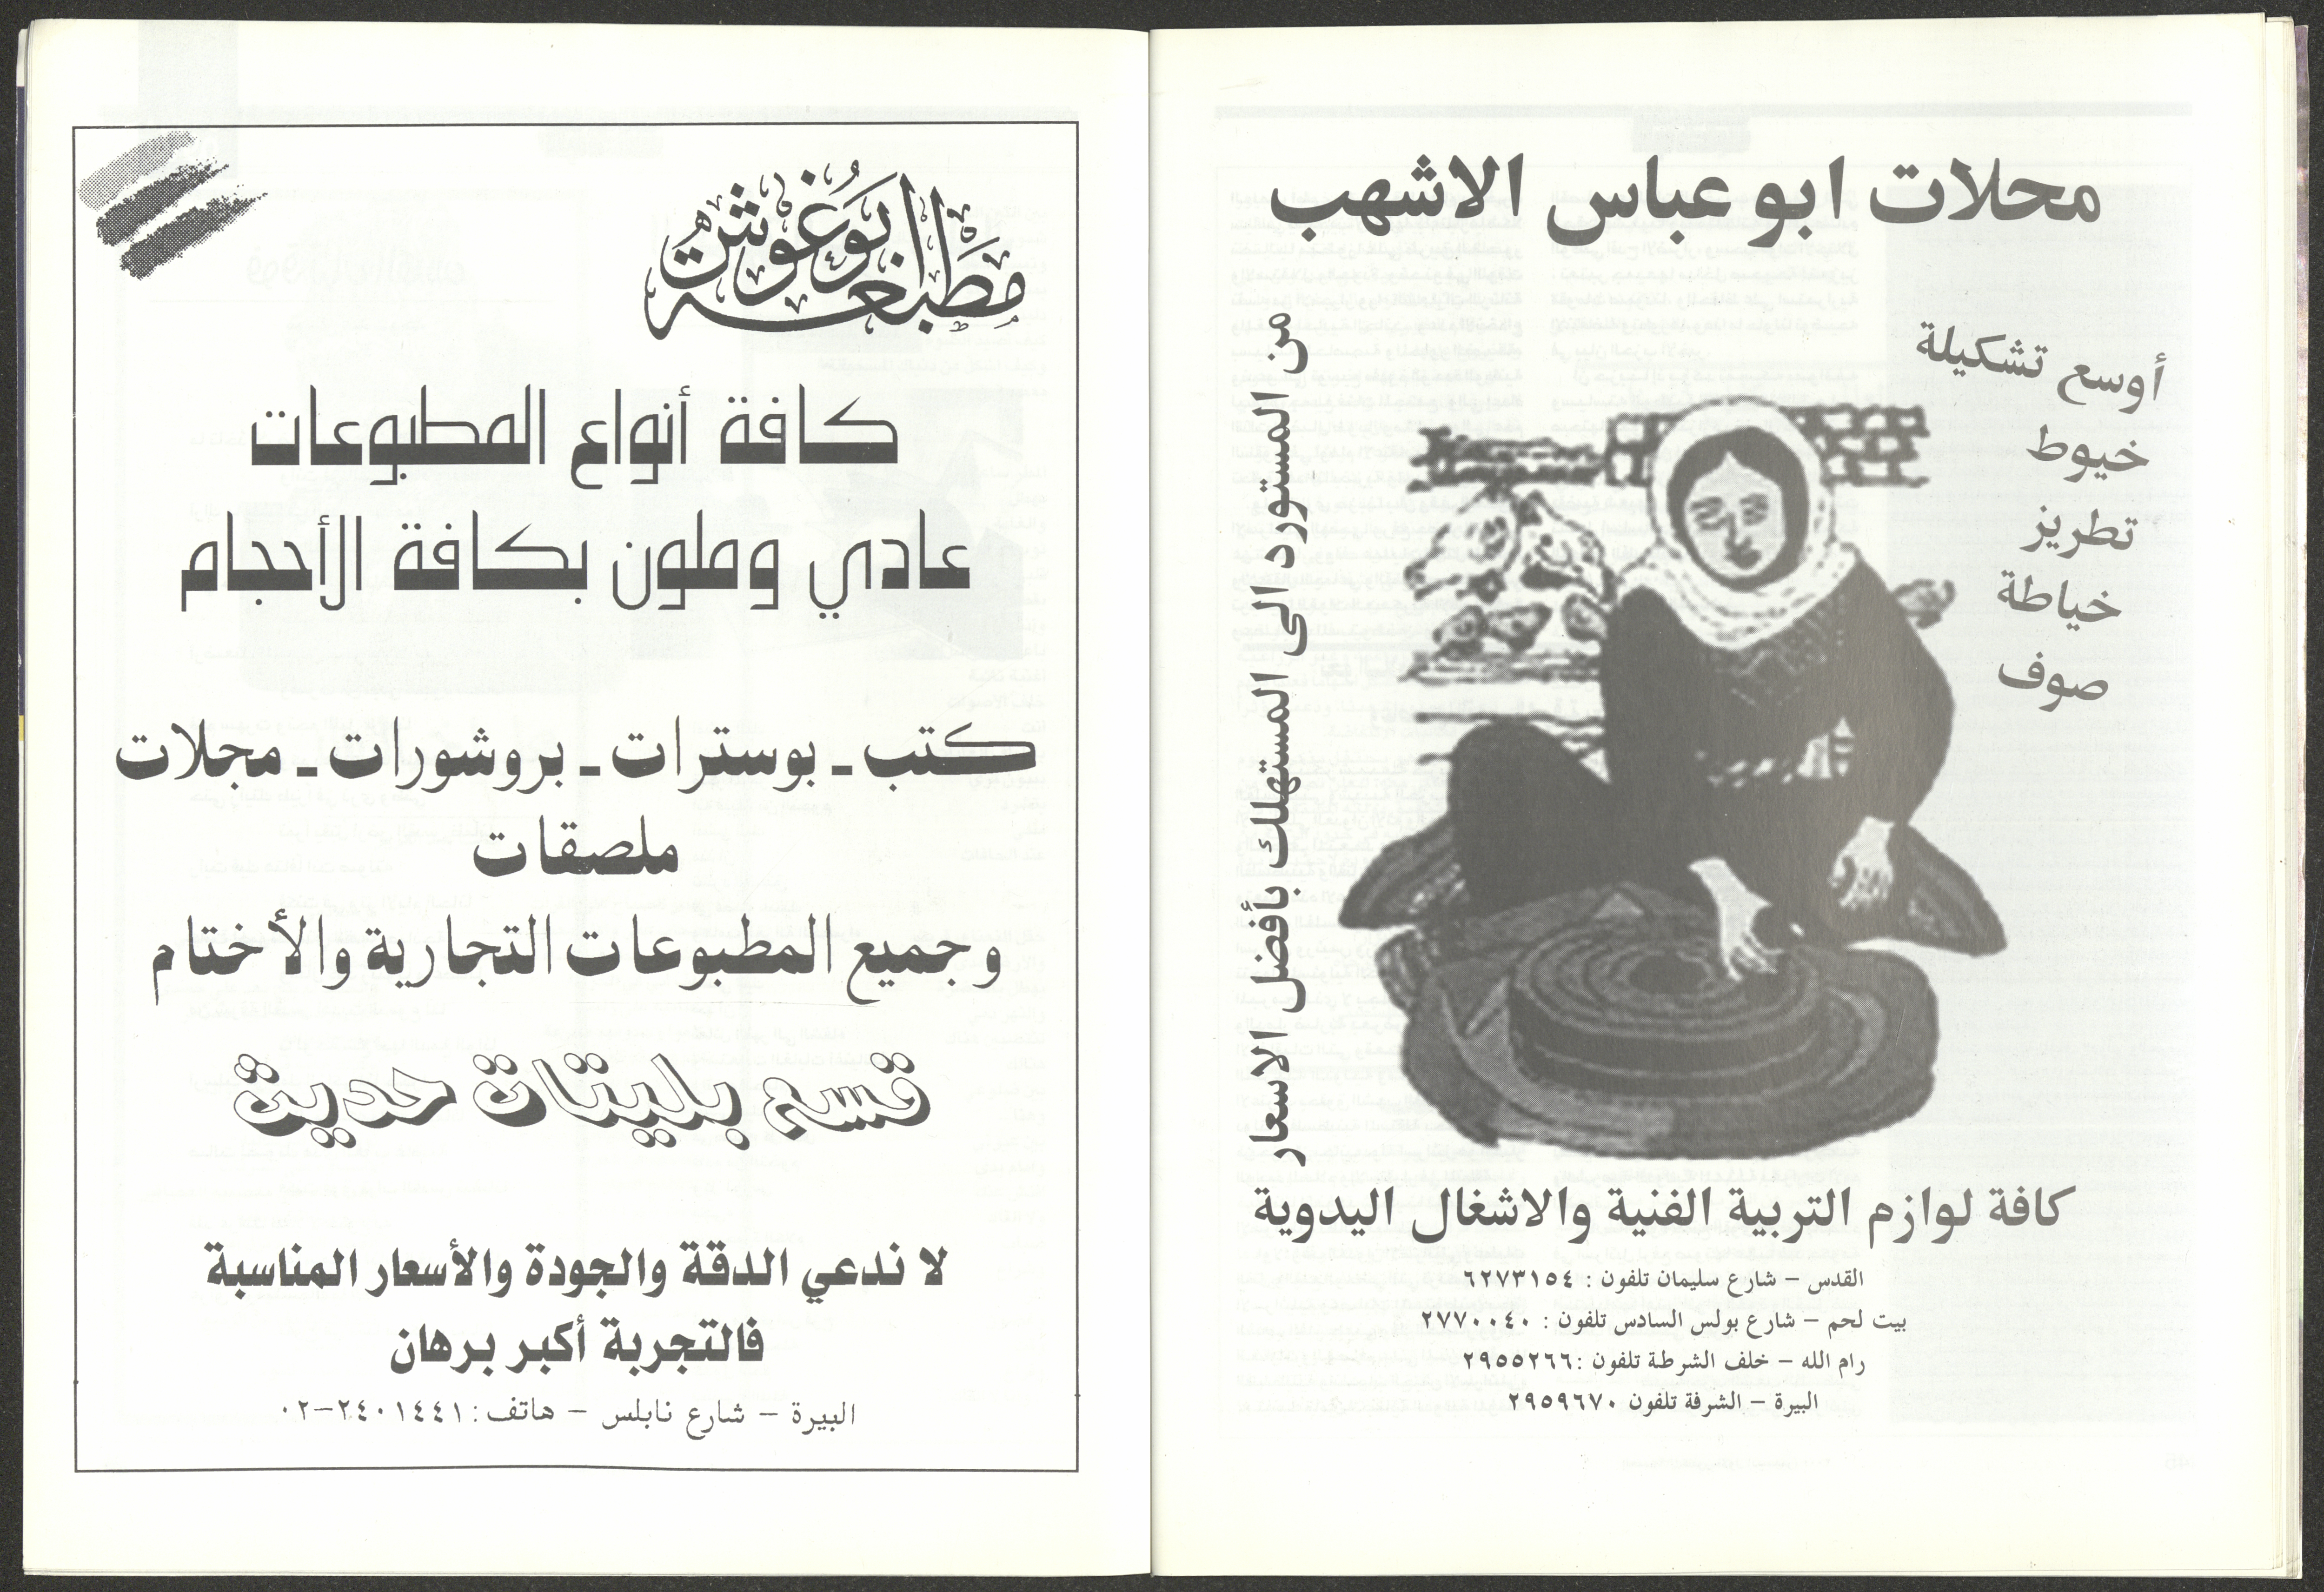 محلات ابو عباس الاشهب
أوسع تشكيلة
خيوط
تطريز
خياطة
صوف
من المستورد الى المستهلك بأفضل الاسعار
كافة لوازم التربية الفنية والاشغال اليدوية
القدس – شارع سليمان تلفون : ٦٢٧٣١٥٤
بيت لحم – شارع بولس السادس تلفون : ٢٧٧٠٠٤٠
رام الله – خلف الشرطة تلفون :٢٩٥٥٢٦٦
البيرة – الشرفة تلفون ٢٩٥٩٦٧٠
مطبعة ابو غوش
كافة أنواع المطبوعات
عادي وملون بكافة الأحجام
كتب ـ بوسترات ـ بروشورات ـ مجلات
ملصقات
وجميع المطبوعات التجارية والأختام
قسم بليتات حديث
لا ندعي الدقة والجودة والأسعار المناسبة
فالتجربة أكبر برهان
البيرة – شارع نابلس – هاتف: ٢٤٠١٤٤١–٠٢